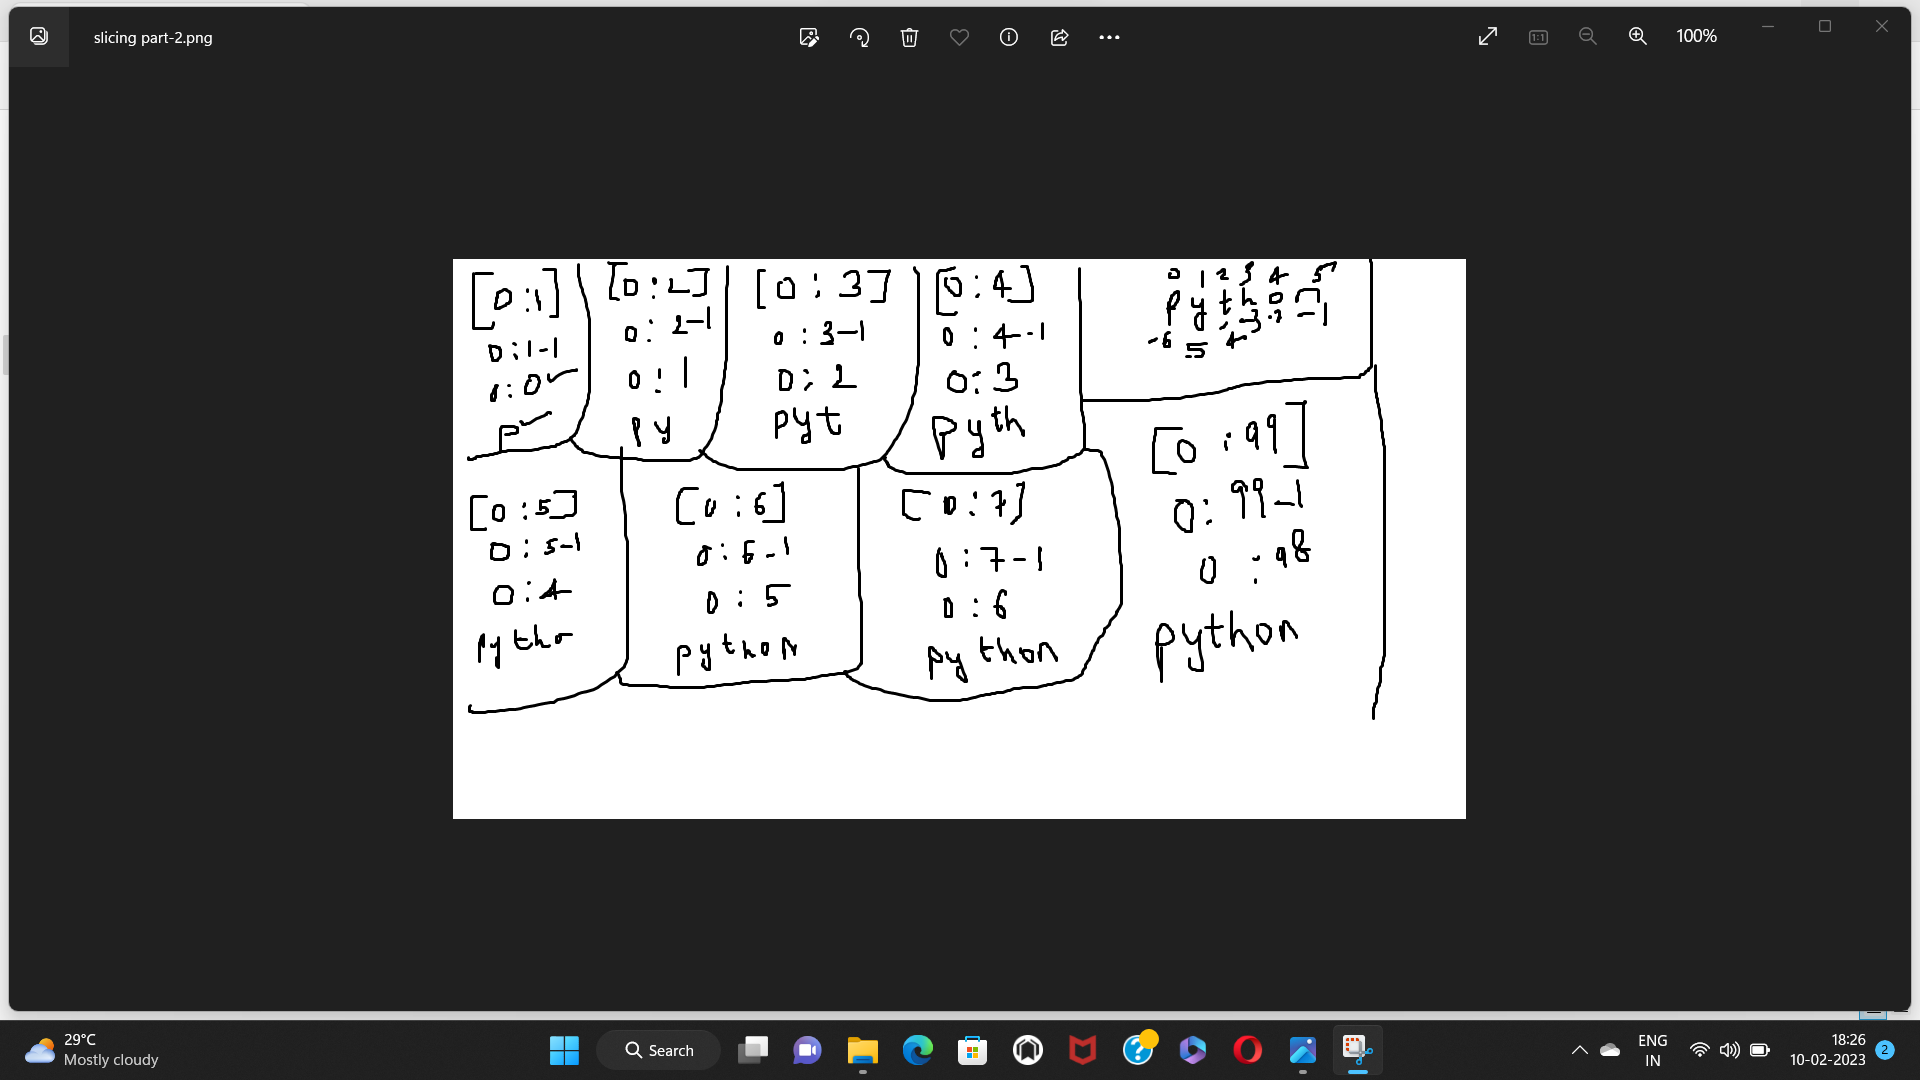 slicing part-2.png
100%
[0:1]
0:1-1
0:0
P
[0:2]
0:2-1
0:1
py
[0:3]
0:3-1
0:2
pyt
[0:4]
0:4-1
0:3
pyth
0 1 2 3 4 5
python
-6 5 4 -3 -2 -1
[0:5]
0:5-1
0:4
pytho
[0:6]
0:6-1
0:5
python
[0:7]
0:7-1
0:6
python
[0:99]
0:99-1
0:98
python
29°C
Mostly cloudy
Search
ENG
IN
18:26
10-02-2023
2